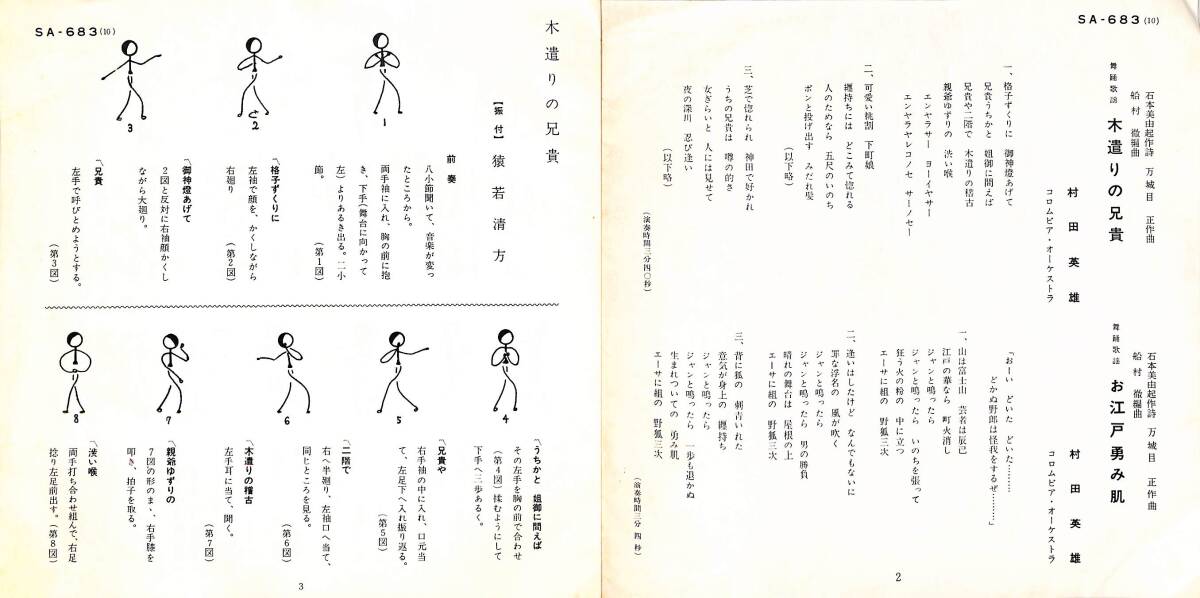 SA-683(10)
石本美由起作詩 万城目 正作曲
船村 徹編曲
舞踊歌謡 木遣りの兄貴
村田英雄
コロムビア・オーケストラ
一、格子ずくりに 御神燈あげて
兄貴うちかと 姐御に問えば
兄貴や二階で 木遣りの稽古
親爺ゆずりの 渋い喉
エンヤラサー ヨーイヤサー
エンヤラヤレコノセ サーノセー
二、可愛い桃割 下町娘
纒持ちには どこみて惚れる
人のためなら 五尺のいのち
ポンと投げ出す みだれ髪
(以下略)
三、芝で惚れられ 神田で好かれ
うちの兄貴は 噂の的さ
女ぎらいと 人には見せて
夜の深川 忍び逢い
(以下略)
(演奏時間三分四〇秒)
石本美由起作詩 万城目 正作曲
船村 徹編曲
舞踊歌謡 お江戸勇み肌
村田英雄
コロムビア・オーケストラ
「おーい どいた どいた………
どかぬ野郎は怪我をするぜ………」
一、山は富士山 芸者は辰己
江戸の華なら 町火消し
ジャンと鳴ったら
ジャンと鳴ったら いのちを張って
狂う火の粉の 中に立つ
エーサに組の 野狐三次
二、逢いはしたけど なんでもないに
罪な浮名の 風が吹く
ジャンと鳴ったら
ジャンと鳴ったら 男の勝負
晴れの舞台は 屋根の上
エーサに組の 野狐三次
三、背に狐の 刺青いれた
意気が身上の 纒持ち
ジャンと鳴ったら
ジャンと鳴ったら 一歩も退かぬ
生まれついての 勇み肌
エーサに組の 野狐三次
(演奏時間三分 四秒)
2
SA-683(10)
木遣りの兄貴
【振付】猿若清方
1
2
3
前奏
八小節聞いて、音楽が変っ
たところから。
両手袖に入れ、胸の前に抱
き、下手(舞台に向かって
左)よりあるき出る。二小
節。
(第1図)
〽格子ずくりに
左袖で顔を、かくしながら
右廻り
(第2図)
〽御神燈あげて
2図と反対に右袖顔かくし
ながら大廻り。
〽兄貴
左手で呼びとめようとする。
(第3図)
4
5
6
7
8
〽うちかと 姐御に問えば
その左手を胸の前で合わせ
(第4図)揉むようにして
下手へ三歩あるく。
〽兄貴や
右手袖の中に入れ、口元当
て、左足下へ入れ振り返る。
(第5図)
〽二階で
右へ半廻り、左袖口へ当て、
同じところを見る。
(第6図)
〽木遣りの稽古
左手耳に当て、聞く。
(第7図)
〽親爺ゆずりの
7図の形のまゝ、右手膝を
叩き、拍子を取る。
〽渋い喉
両手打ち合わせ組んで、右足
捻り左足前出す。(第8図)
3